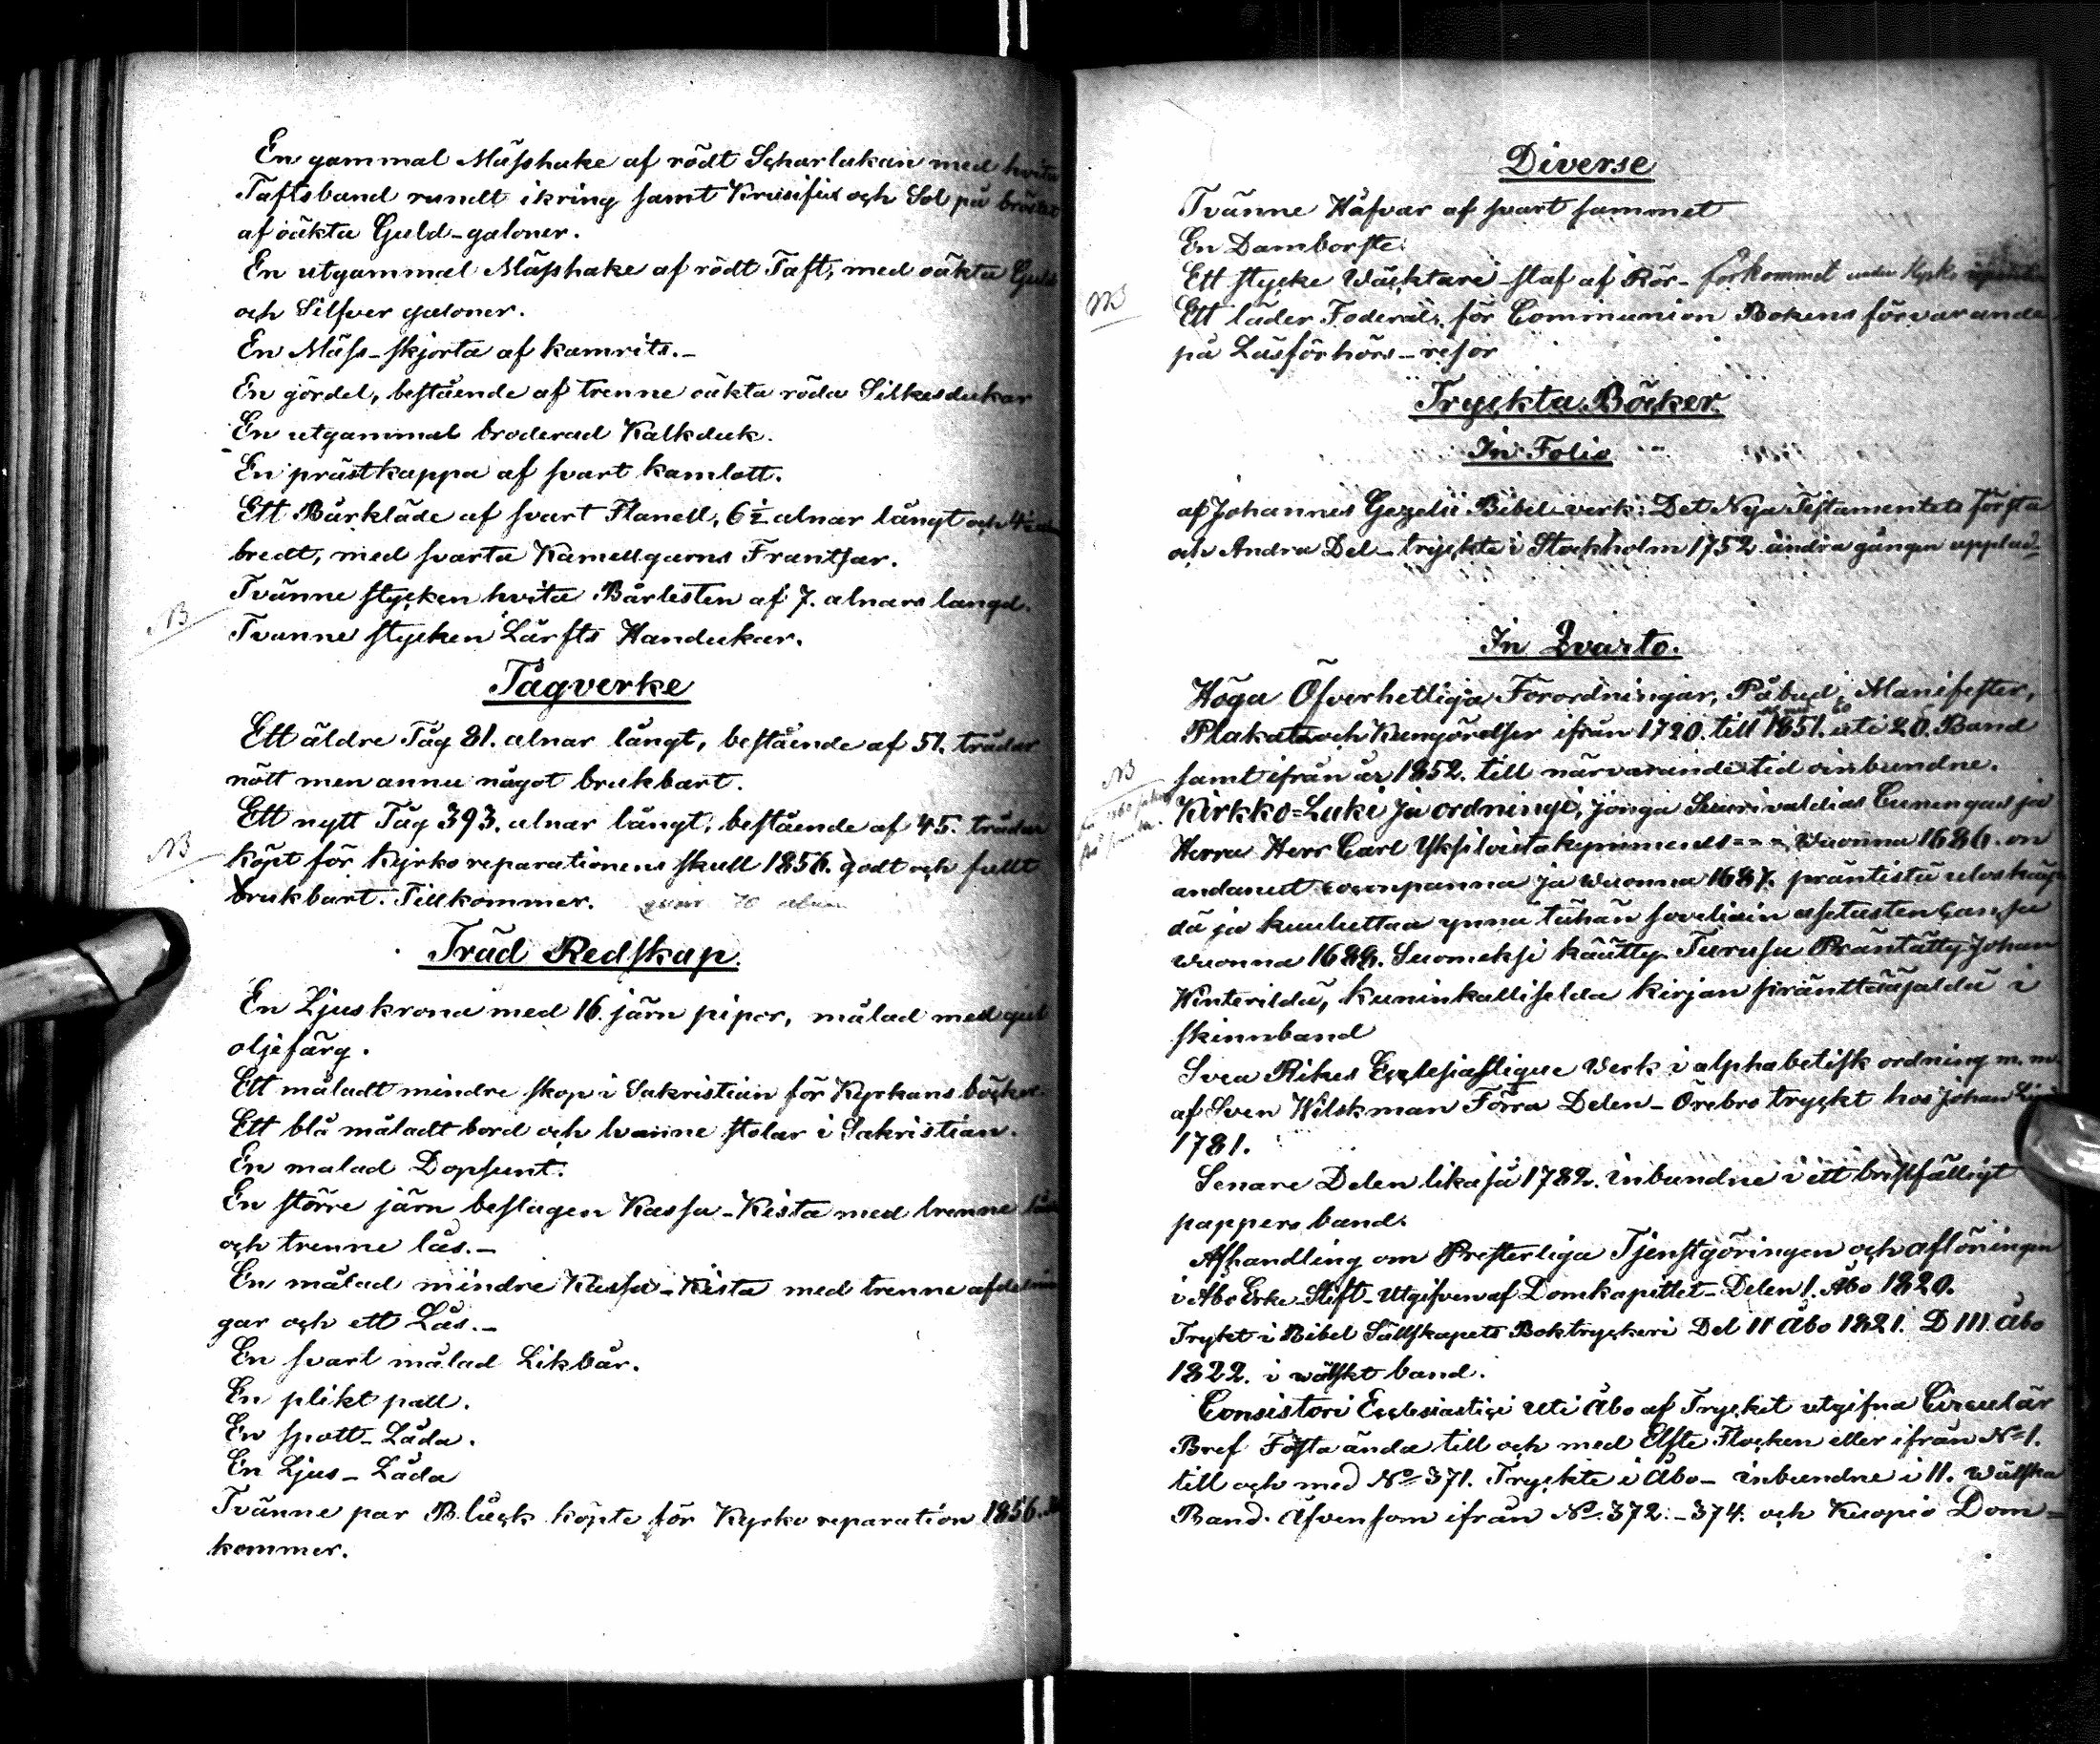 En gammal Mässhake af rödt Scharlakan med hvita
Taftsband rundt ikring samt Krusifix och Sol på bröstet
af oäkta Guld-galoner.
En utgammal Mässhake af rödt Taft, med oäkta Guld
och Silfver galoner.
En Mäss-skjorta af kamrits.-
En gördel, bestående af trenne oäkta röda Silkesdukar
En utgammal broderad Kalkduk.
En prästkappa af svart kamlott.
Ett Bårkläde af svart Flanell, 6½ alnar långt och 4½
bredt, med svarta Kamellgarns Frantsar.
Tvänne stycken hvita Bårlesten af 7. alnars langd.
NB
Tvanne stycken Lärfts Handukar.
Tågverke
Ett äldre Tåg 81. alnar långt, bestående af 51. trådar
nött men annu något brukbart.
Ett nytt Tåg 393. alnar långt, bestående af 45. trådar
NB
köpt för Kyrko reparationens skull 1856. godt och fullt
brukbart. Tillkommer. 70 alnar
Träd Redskap.
En Ljuskrona med 16. järn pipor, målad med gul
oljefärg.
Ett måladt mindre skop i Sakristian för Kyrkans böcker
Ett blå måladt bord och tvanne stolar i Sakristian.
En malad Dopfunt.
En större järn beslagen Kassa-Kista med trenne
och trenne lås.-
En målad mindre Kassa-Kista med trenne afdelnin
gar och ett Lås.-
En svart målad Likbår.
En plikt pall.
En spott-Låda.
En Ljus-Låda
Tvänne par Bläck köpte för Kyrko reparation 1856.
kommer.
Diverse
Tvänne Håfvar af svart sammet
En Damborste
Ett stycke Wäcktare-staf af Rör- förkommet under Kyrko
NB
Ett läder Foderal, för Communion Bokens förvarande
på Läsförhörs-resor
Tryckta Böcker.
In Folio
af Johannes Gezelii Bibel verk: Det Nya Testamentets första
och Andra Del-tryckte i Stockholm 1752 andra gången upplad
In Qvarto.
Höga Öfverhetliga Förordningar, Påbud, Manifester,
Plakater och Kungörelser ifrån 1720. till 1851. uti 20. Band
NB
samt ifrån år 1852. till närvarande tid oinbundne.
Kirkko=Laki ja ordningi, jonga Suurivaldias Cuningas ja
Herra Herr Carl Yksitoistakymmendes - - - Wuonna 1686. on
andanut cocoonpanna ja Wuonna 1687. präntistä uloskäy
dä ja kuuluttaa ynnä tähän soveliain asetusten cansa
wuonna 1688. Suomeksi käätty Turusa Präntätty Johan
Winterildä, Kuninkallisselda kirjan pränttääjäldä i
skinnband
Svea Rikes Ecclesiastique Verk i alphabetisk ordning m. m.
af Sven Wilskman Förra Delen-Örebro tryckt hos Johan
1781.
Senare Delen likaså 1782. inbundne i ett bristfälligt
pappers band.
Afhandling om Presterliga Tjenstgöringen och aflöningen
i Åbo Erke-Stift-Utgifven af Domkapittet-Delen I. Åbo 1820.
Trykt i Bibel Sällskapets Boktryckeri Del II Åbo 1821. D III Åbo
1822. i wälskt band.
Consistori Ecclesiastici uti Åbo af Trycket utgifna Circulär
Bref Fösta ända till och med Elfte Flocken eller ifrån No 1.
till och med No 371. Tryckte i Åbo- inbundne i 11. Wälska
Band. Äfvensom ifrån No. 372.-374. och Kuopio Dom=